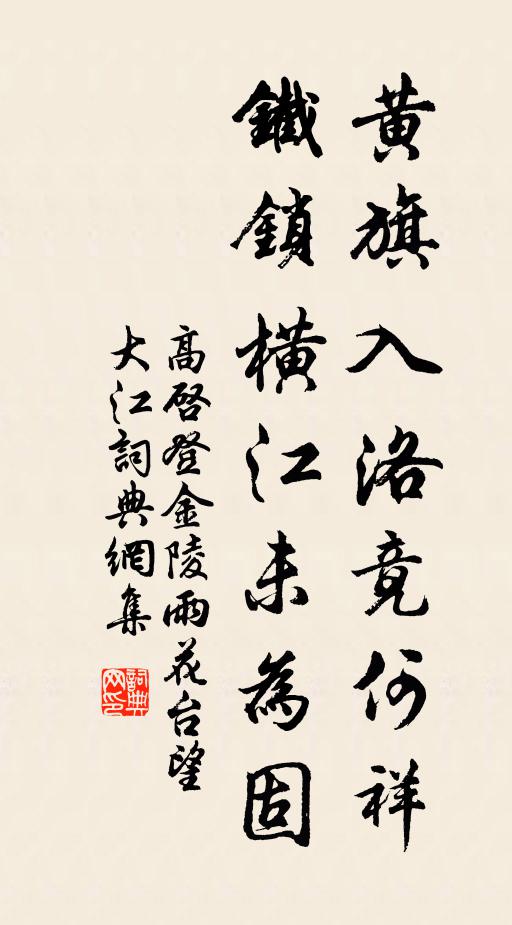 黄旗入洛竟何祥
鐵鎖橫江未為固
高啓登金陵雨花台望
大江詞典網集
詞典
网印